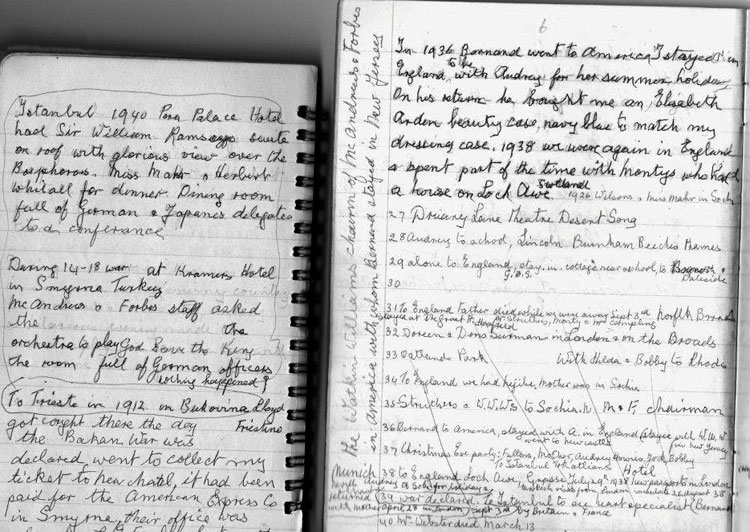 Istanbul 1940 Pera Palace Hotel
had Sir William Ramsays suite
on roof with glorious view over the
Bosphoros. Miss Mahr & Herbert
Whitall for dinner Dining room
full of German & Japanes delegates
to a conference
During 14-18 war at Kramers Hotel
in Smyrna Turkey
McAndrews & Forbes staff asked
the the
orchestra to play God Save the King
the room full of German officers
nothing happened!
To Trieste in 1912 in Bukovina Lloyd
Triestino
got caught there the day
the Balkan War was
declared went to collect my
ticket to New hotel, it had been
paid for the American Express Co
in Smyrna, their office was
The Watkin Williams chairm of McAndrews & Forbes
in America with whom Bernard stayed in New Jersey
6
In 1936 Bernard went to America I stayed in
England, to be with Audrey for her summer holiday
On his return he brought me an Elisabeth
Arden beauty case, navy blue to match my
dressing case. 1938 we were again in England
& spent part of the time with Montys who had
a house on Loch Awe Scotland
1926 Welsons & Miss Mahr in Sochia
27 Druary Lane Theatre Desert Song
28 Audrey to school, Lincoln Burnham Beeches Thames
29 alone to England, stay in cottage near school, to Bognor
30
31 To England Father died while we were away Sept 3rd Norfolk Broads
32 Doreen & Dons Surman & on the Broads
33 Park With Hilda & Bobby to Rhods
34 To England we had Mother was in Sochia
35 Struthers & W.W.W's to Sochia. M & F. chairman
36 Bernard to America, stayed with A. in England stayed with W.W.W
in New Jersey
37 Christmas Eve party: Fullers, Mother, Audrey
Hotel
Munich 38 to England Loch Awe,
returned 39 war declared. To Istanbul to see heart specialist (Bernard
Sept 3rd by Britain & France
40 Mr Webster died March 13